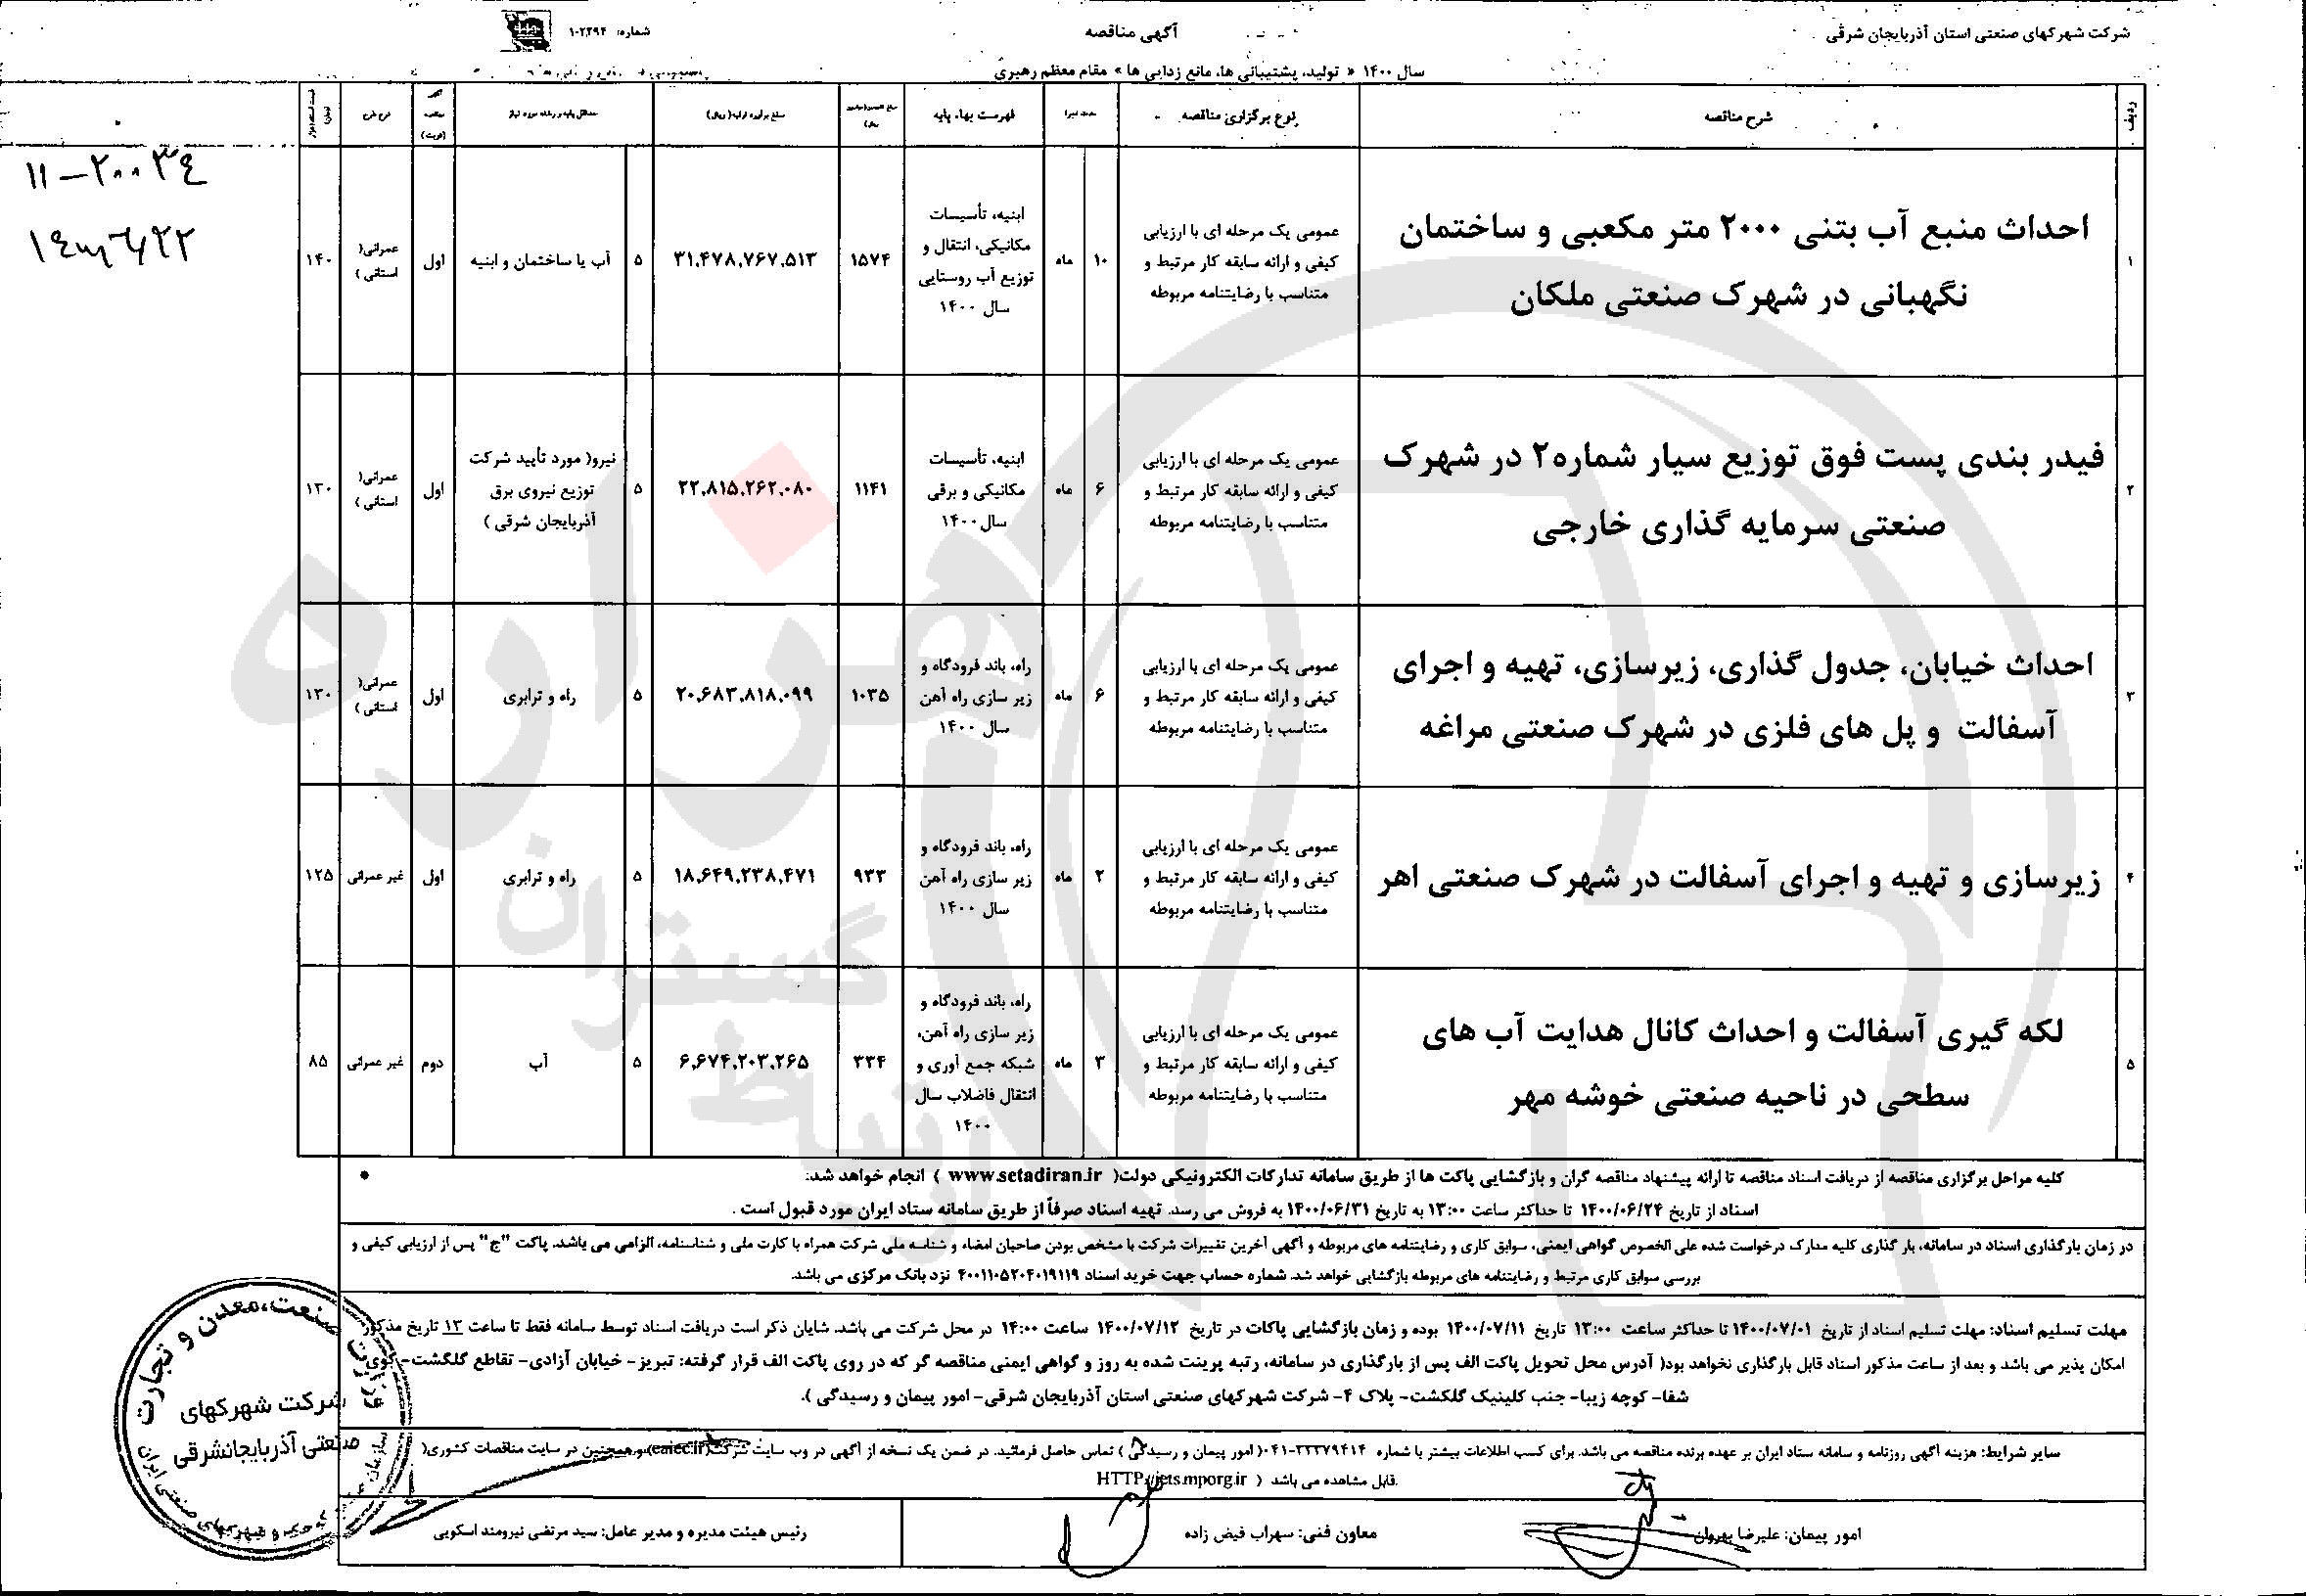 شرکت شهرکهای صنعتی استان آذربایجان شرقی
آگهی مناقصه
شماره: ۱۰۲۳۹۴
سال ۱۴۰۰ « تولید، پشتیبانی ها، مانع زدایی ها» مقام معظم رهبری
ردیف
شرح مناقصه
نوع برگزاری مناقصه
فهرست بهاء پایه
مبلغ برآورد اولیه( ریال)
حداقل پایه و رشته مورد نیاز
نوع طرح
۱
احداث منبع آب بتنی ۲۰۰۰ متر مکعبی و ساختمان
نگهبانی در شهرک صنعتی ملکان
عمومی یک مرحله ای با ارزیابی
کیفی و ارائه سابقه کار مرتبط و
متناسب با رضایتنامه مربوطه
۱۰
ماه
ابنیه، تأسیسات
مکانیکی، انتقال و
توزیع آب روستایی
سال ۱۴۰۰
۱۵۷۴
۳۱،۴۷۸،۷۶۷،۵۱۳
۵
آب یا ساختمان و ابنیه
اول
عمرانی(
استانی )
۱۴۰
۲
فیدر بندی پست فوق توزیع سیار شماره۲ در شهرک
صنعتی سرمایه گذاری خارجی
عمومی یک مرحله ای با ارزیابی
کیفی و ارائه سابقه کار مرتبط و
متناسب با رضایتنامه مربوطه
۶
ماه
ابنیه، تأسیسات
مکانیکی و برقی
سال ۱۴۰۰
۱۱۴۱
۲۲،۸۱۵،۲۶۲،۰۸۰
۵
نیرو( مورد تأیید شرکت
توزیع نیروی برق
آذربایجان شرقی )
اول
عمرانی(
استانی )
۱۳۰
۳
احداث خیابان، جدول گذاری، زیرسازی، تهیه و اجرای
آسفالت و پل های فلزی در شهرک صنعتی مراغه
عمومی یک مرحله ای با ارزیابی
کیفی و ارائه سابقه کار مرتبط و
متناسب با رضایتنامه مربوطه
۶
ماه
راه، باند فرودگاه و
زیر سازی راه آهن
سال ۱۴۰۰
۱۰۳۵
۲۰،۶۸۳،۸۱۸،۰۹۹
۵
راه و ترابری
اول
عمرانی(
استانی )
۱۳۰
۴
زیرسازی و تهیه و اجرای آسفالت در شهرک صنعتی اهر
عمومی یک مرحله ای با ارزیابی
کیفی و ارائه سابقه کار مرتبط و
متناسب با رضایتنامه مربوطه
۲
ماه
راه، باند فرودگاه و
زیر سازی راه آهن
سال ۱۴۰۰
۹۳۳
۱۸،۶۴۹،۲۳۸،۴۷۱
۵
راه و ترابری
اول
غیر عمرانی
۱۲۵
۵
لکه گیری آسفالت و احداث کانال هدایت آب های
سطحی در ناحیه صنعتی خوشه مهر
عمومی یک مرحله ای با ارزیابی
کیفی و ارائه سابقه کار مرتبط و
متناسب با رضایتنامه مربوطه
۳
ماه
راه، باند فرودگاه و
زیر سازی راه آهن،
شبکه جمع آوری و
انتقال فاضلاب سال
۱۴۰۰
۳۳۴
۶،۶۷۴،۲۰۳،۲۶۵
۵
آب
دوم
غیر عمرانی
۸۵
کلیه مراحل برگزاری مناقصه از دریافت اسناد مناقصه تا ارائه پیشنهاد مناقصه گران و بازگشایی پاکت ها از طریق سامانه تدارکات الکترونیکی دولت( www.setadiran.ir ) انجام خواهد شد:
اسناد از تاریخ ۱۴۰۰/۰۶/۲۴ تا حداکثر ساعت ۱۳:۰۰ به تاریخ ۱۴۰۰/۰۶/۳۱ به فروش می رسد. تهیه اسناد صرفاً از طریق سامانه ستاد ایران مورد قبول است .
در زمان بارگذاری اسناد در سامانه، بار گذاری کلیه مدارک درخواست شده علی الخصوص گواهی ایمنی، سوابق کاری و رضایتنامه های مربوطه و آگهی آخرین تغییرات شرکت با مشخص بودن صاحبان امضاء و شناسه ملی شرکت همراه با کارت ملی و شناسنامه، الزامی می باشد. پاکت "ج" پس از ارزیابی کیفی و
بررسی سوابق کاری مرتبط و رضایتنامه های مربوطه بازگشایی خواهد شد. شماره حساب جهت خرید اسناد ۴۰۰۱۱۰۵۲۰۴۰۱۹۱۱۹ نزد بانک مرکزی می باشد.
مهلت تسلیم اسناد: مهلت تسلیم اسناد از تاریخ ۱۴۰۰/۰۷/۰۱ تا حداکثر ساعت ۱۳:۰۰ تاریخ ۱۴۰۰/۰۷/۱۱ بوده و زمان بازگشایی پاکات در تاریخ ۱۴۰۰/۰۷/۱۲ ساعت ۱۴:۰۰ در محل شرکت می باشد. شایان ذکر است دریافت اسناد توسط سامانه فقط تا ساعت ۱۳ تاریخ مذکور
امکان پذیر می باشد و بعد از ساعت مذکور اسناد قابل بارگذاری نخواهد بود( آدرس محل تحویل پاکت الف پس از بارگذاری در سامانه، رتبه پرینت شده به روز و گواهی ایمنی مناقصه گر که در روی پاکت الف قرار گرفته: تبریز- خیابان آزادی- تقاطع گلگشت- کوی
شفا- کوچه زیبا- جنب کلینیک گلگشت- پلاک ۴- شرکت شهرکهای صنعتی استان آذربایجان شرقی- امور پیمان و رسیدگی ).
سایر شرایط: هزینه آگهی روزنامه و سامانه ستاد ایران بر عهده برنده مناقصه می باشد. برای کسب اطلاعات بیشتر با شماره ۳۳۳۷۹۴۱۴-۰۴۱( امور پیمان و رسیدگی ) تماس حاصل فرمائید. در ضمن یک نسخه از آگهی در وب سایت شرکت(eaiec.ir)و همچنین در سایت مناقصات کشوری(
HTTP://iets.mporg.ir ) قابل مشاهده می باشد.
امور پیمان: علیرضا بهروان
معاون فنی: سهراب فیض زاده
رئیس هیئت مدیره و مدیر عامل: سید مرتضی نیرومند اسکویی
۱۱-۲۰۰۳۴
وزارت صنعت، معدن و تجارت
شرکت شهرکهای
صنعتی آذربایجانشرقی
هزاره
گستران
ارتباط